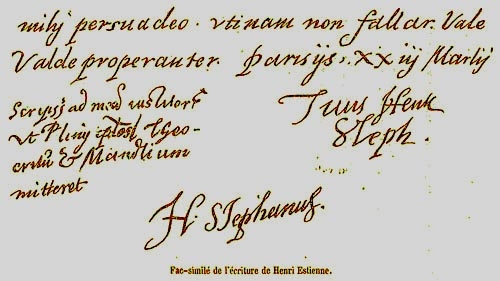 mihj persuadeo. vtinam non fallar. Vale
Valde properanter. Parisijs. XX iij Martij
Scripsj ad med
vt Plinij Theo-
critū & Manilium
mitteret
Tuus Henr
Steph.
H. Stephanus.
Fac-similé de l'écriture de Henri Estienne.